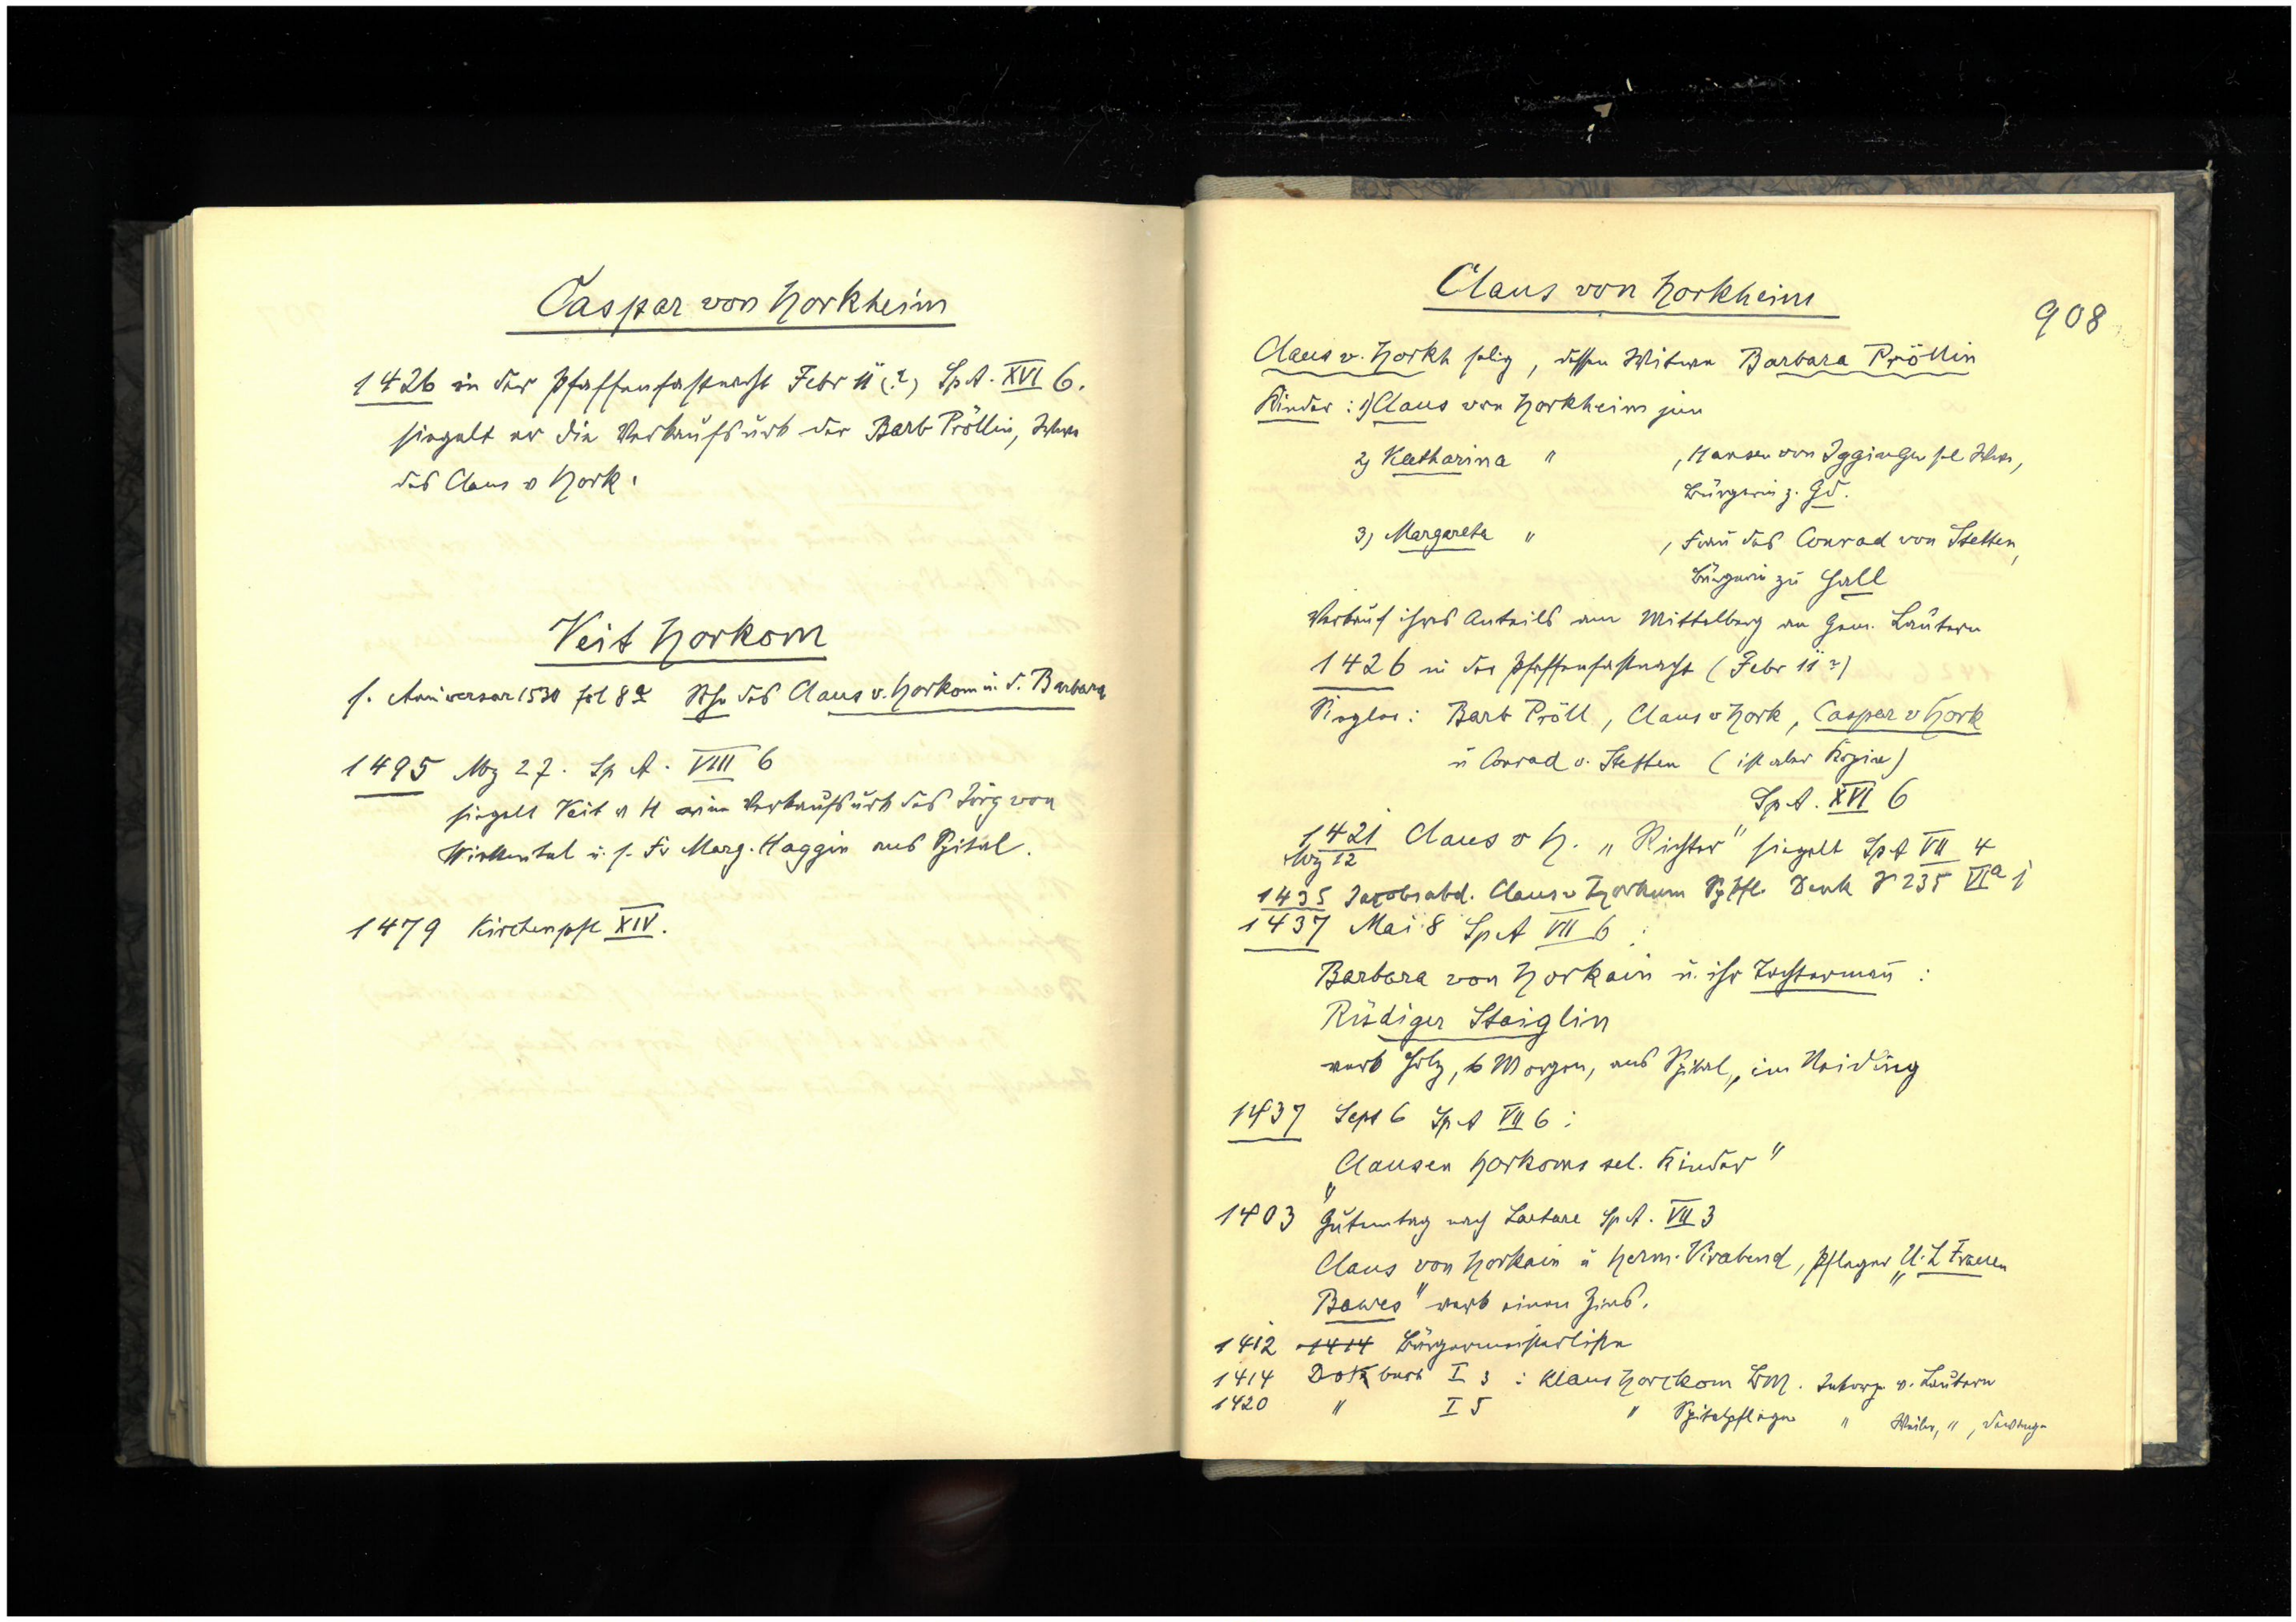 Caspar von Horkheim
1426 in der Pfaffenfastnacht Febr 11 (?) Sp. A. XVI 6.
siegelt er die Verkaufsurk der Barb Pröllin, Witwe
des Claus v Hork.
Veit Horkom
s. Anniversar 1530 fol 8a Sohn des Claus v. Horkom u. d. Barbara
1495 Mz 27. Sp A. VIII 6
siegelt Veit v H eine Verkaufsurk des Jörg von
u. s. Fr Marg. Haggin ans Spital.
1479 Kirchenpfl XIV.
Claus von Horkheim
908
Claus v. Horkh selig, dessen Witwe Barbara Pröllin
Kinder: 1) Claus von Horkheim jun
2) Katharina " , Hansen von Iggingen sel Witwe,
Bürgerin z. Gd.
3) Margareta " , Frau des Conrad von Stetten,
Bürgerin zu Hall
Verkauf ihres Anteils am Mittelberg an Gem. Lautern
1426 in der Pfaffenfastnacht (Febr 11?)
Siegler: Barb Pröll, Claus v Hork, Caspar v Hork
u Conrad v. Stetten (ist aber Kopie)
Sp A. XVI 6
1421 Claus v H. „Richter" siegelt Sp A VII 4
Mz 12
1435 Jacobsabd. Claus v Horkum Sp Pfl. Denk 235 VIa j
1437 Mai 8 Sp A VII 6:
Barbara von Horkain u. ihr Tochterman:
Rüdiger Staiglin
verk Holz, 6 Morgen, ans Spital, im
1437 Sept 6 Sp A VII 6:
„Clausen Horkoms sel. Kinder"
1403 Gutentag nach Laetare Sp A. VII 3
Claus von Horkain u Herm. Virabend, Pfleger „U. L Frauen
Bawes" verk einen Zins.
1412 1414 Bürgermeisterliste
1414 Dok buch I 3: Klaus Horckom BM. v. Lautern
1420 " I 5 " Spitalpfleger " Weiler, ",